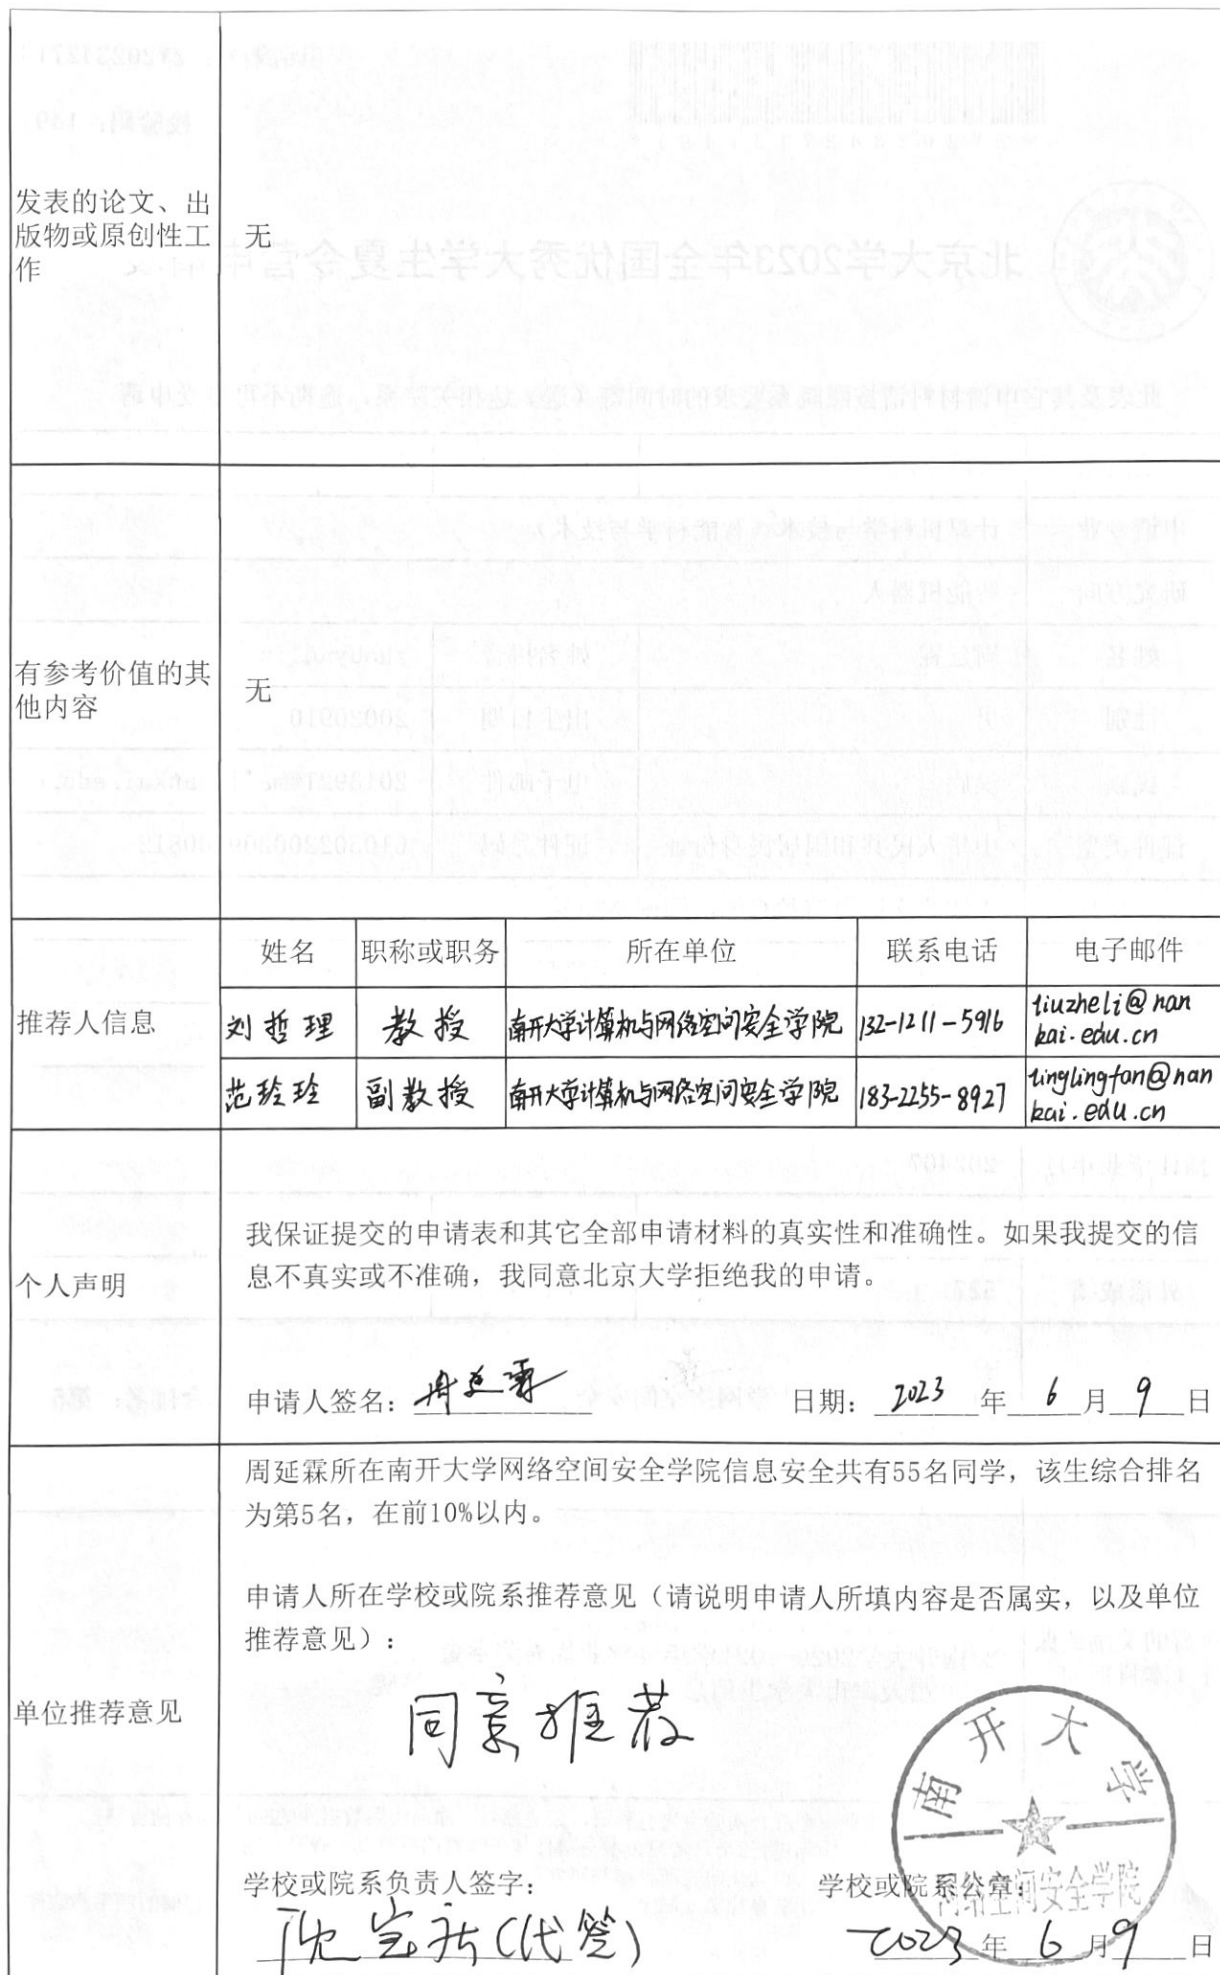 发表的论文、出
版物或原创性工
作
无
有参考价值的其
他内容
无
推荐人信息
姓名 职称或职务 所在单位 联系电话 电子邮件
刘哲理 教授 南开大学计算机与网络空间安全学院 132-1211-5916 liuzheli@nan
kai.edu.cn
范玲玲 副教授 南开大学计算机与网络空间安全学院 183-2255-8927 linglingfan@nan
kai.edu.cn
个人声明
我保证提交的申请表和其它全部申请材料的真实性和准确性。如果我提交的信
息不真实或不准确，我同意北京大学拒绝我的申请。
申请人签名：周延霖 日期：2023年6月9日
单位推荐意见
周延霖所在南开大学网络空间安全学院信息安全共有55名同学，该生综合排名
为第5名，在前10%以内。
申请人所在学校或院系推荐意见（请说明申请人所填内容是否属实，以及单位
推荐意见）：
同意推荐
南开大学
网络空间安全学院
学校或院系负责人签字： 学校或院系公章：
(代签) 2023年6月9日